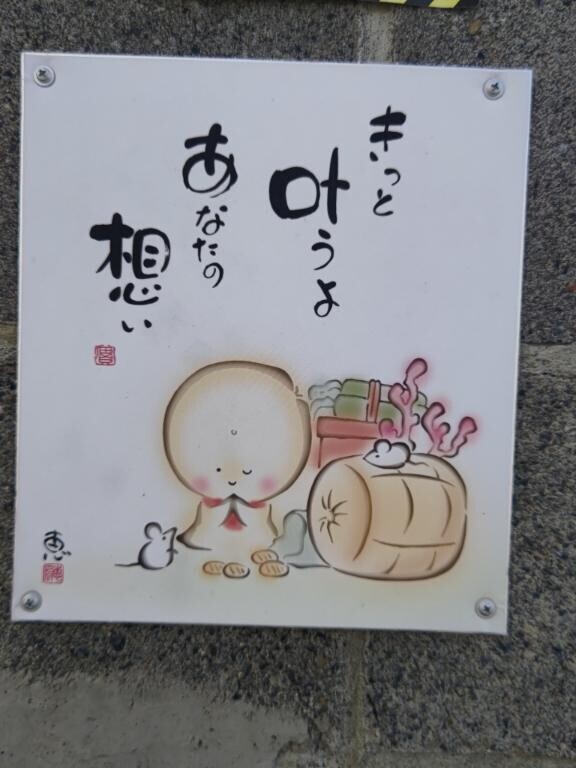 きっと
叶うよ
あなたの
想い
恵